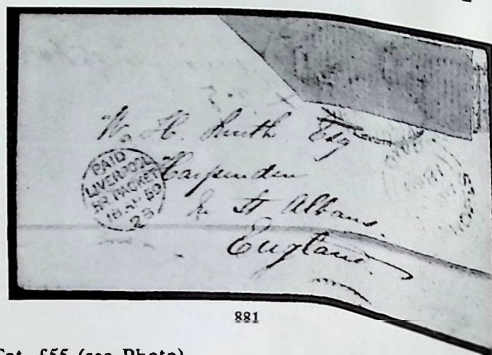 W. H. Smith Esq
Harpenden
St Albans.
England
PAID
LIVERPOOL
BR PACKET
18 59
2 S
881
£55 (see Photo)